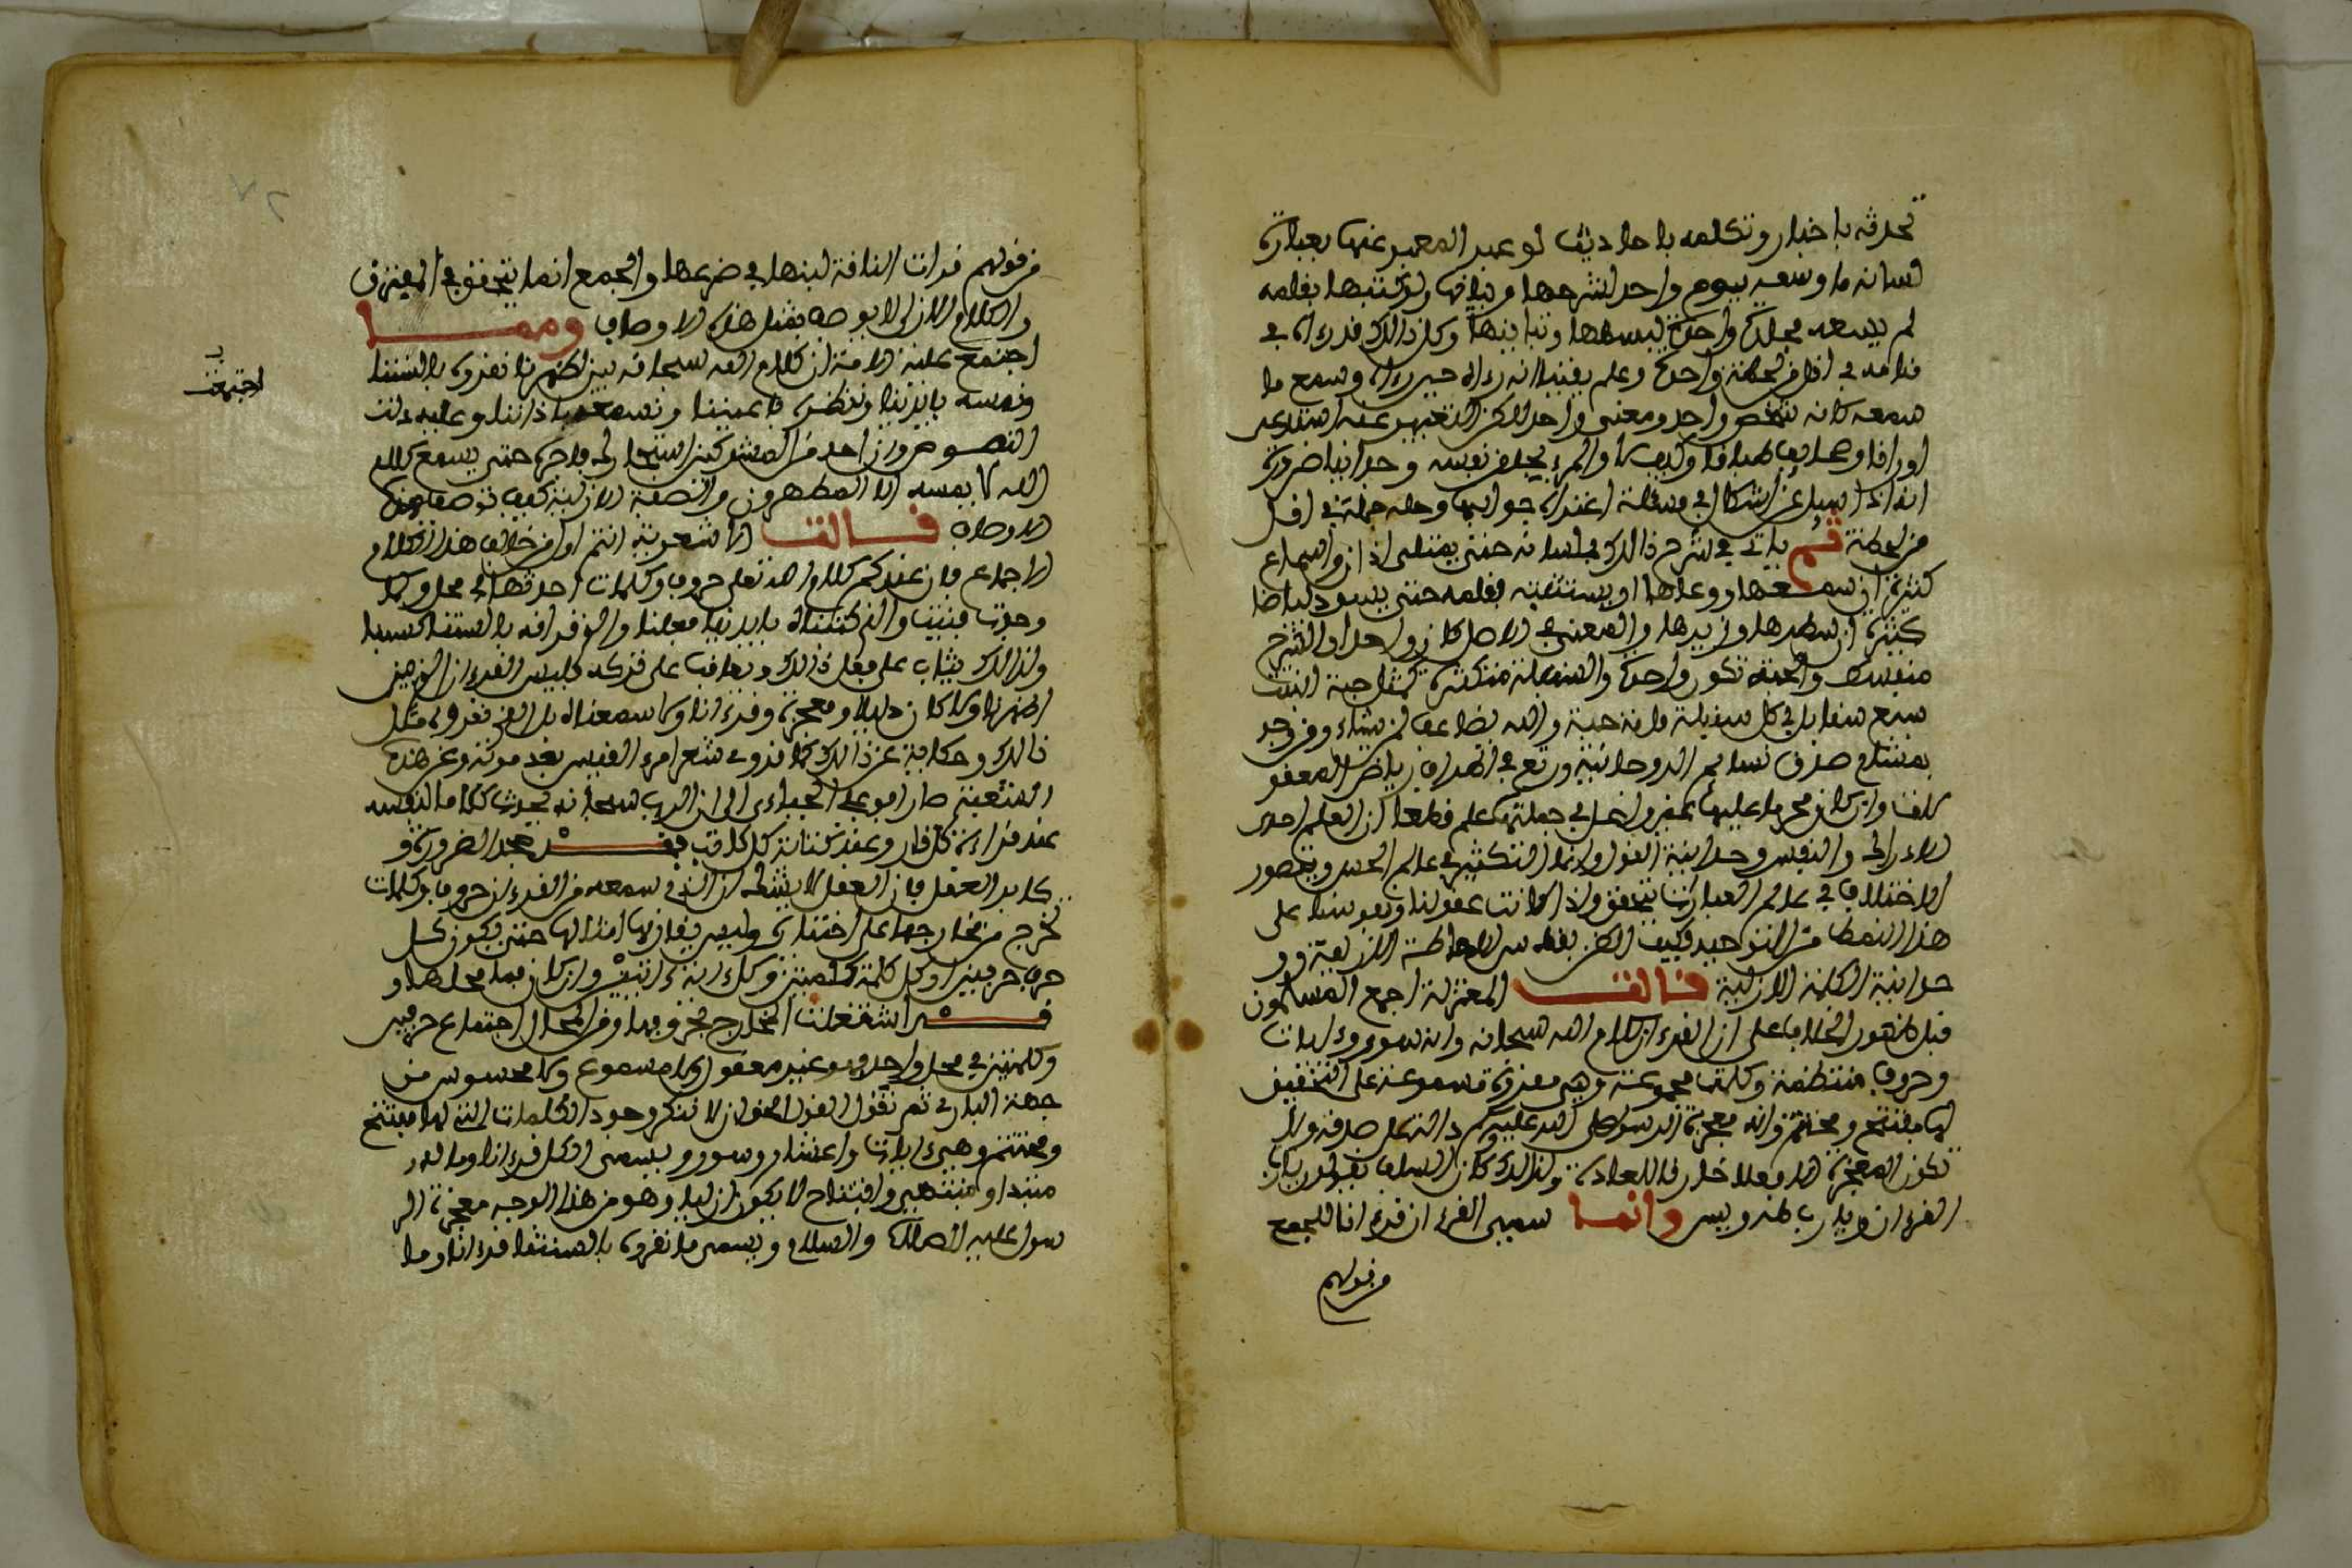 تحدثه باخبار وتكلمه باحاديث لو عبر المعبر عنها بعبارة
لسانه ما وسعه يوم واحد لشرحها وبيانها ولو كتبها بقلمه
لم يسعه مجلدة واحدة لبسطها وتبيانها وكل ذالك قد رءاه في
منامه في اقل من لحظة واحدة وعلم يقينا انه رءاه حين رءاه وسمع ما
سمعه كانه شخص واحد ومعنى واحد لاكن التعبير عنه استدعى
اوراقا وصحايف طباقا وكيف لا والمرء يجد من نفسه وجدانا ضروريا
انه اذا سيل عن اشكال في مسئلة اعتراه جوابها وحله جملة في اقل
من لحظة ثم ياتي في شرح ذالك بلسانه حتى يمتلي اذان واسماع
كثيرة ان سمعها ووعاها او يستثبته بقلمه حتى يسود بياضا
كثيرة ان سطرها وزبرها والمعنى في الاصل كان واحدا والشرح
منبسط والحبة تكون واحدة والسنبلة متكثرة كمثل حبة انبتت
سبع سنابل في كل سنبلة ماية حبة والله يضاعف لمن يشاء ومن وجد
بمشام صدق نسايم الروحانية ورتع في اطراف رياض المعقو
لات وان كان محرما عليها بمنزلة داخل في جملتها علم قطعا ان العلم احدى
الادراك والنفس وحدانية القول وانما التكثير في عالم الحس ويتصور
الاختلاف في عالم العبارات يتحقق واذا كانت عقولنا ونفوسنا على
هذا النمط من التوحيد فكيف الظن بقدس الاحاطة الازلية وو
حدانية الكلمة الازلية قالت المعتزلة اجمع المسلمون
قبل ظهور الخلاف على ان القرءان كلام الله سبحانه وانه سور وءايات
وحروف منتظمة وكلمات مجموعة وهي مقروة مسموعة على التحقيق
لها مفتتح ومختتم وانه معجزة الرسول صلى الله عليه وسلم دالة على صدقه ولا
تكون المعجزة الا فعلا خارقا للعادة ولذالك كان السلف يقولون يارب
القرءان ويارب طه ويس وانما سمي القرءان قرءانا للجمع
من قولهم
من قولهم قرات الناقة لبنها في ضرعها والجمع انما يتحقق في المفترق
والكلام الازلي لا يوصف بمثل هذه الاوصاف ومما
اجتمع عليه الامة ان كلام الله سبحانه بين اظهرنا نقروه بالسنتنا
ونمسه بايدينا وننظره باعيننا ونسمعه باذاننا وعليه دلت
اجتمعت
النصوص وان احد من المشركين استجارك فاجره حتى يسمع كلام
الله لا يمسه الا المطهرون والصفة الازلية كيف توصف بهذه
الاوصاف قالت الاشعرية انتم اول من خالف هذا الكلام
الاجماع فان عندكم كلام الله تعلى حروف وكلمات احدثها في محل وكما
وجدت فنيت والذي كتبناه بايدينا فعلنا والذي قرانه بالستنا كسبنا
ولذالك يثاب على فعل ذالك ويعاقب على تركه فليس القرءان الذي بين
اظهرنا ولا كان دليلا ومعجزة وقرءانا ولا سمعناه بل الذي نقروه مثل
ذالك وحكاية عن ذالك كما نروي شعر امرء القيس بعد موته وعن هذه
الشنعة صار ابو علي الجبائي الى ان الرب سبحانه يحدث كلاما لنفسه
عند قراءة كل قار وعند كتابة كل كاتب فقد جحد الضرورة و
كابر العقل فان العاقل لا يشك ان الذي سمعه من القرءان حروف وكلمات
تخرج من مخارجها على اختياره وليس يقارنها امثالها حتى يكون كل
حرف حرفين وكل كلمة كلمتين وكل ءاية ءايتين وان كان فما محلها و
قد اشتغلت المخارج بحروفها ومن المحال اجتماع حرفين
وكلمتين في محل واحد فهو غير معقول ولا مسموع ولا محسوس من
جهة الباري ثم نقول القول الحق ان لا ننكر وجود الكلمات التي لها مفتتح
ومختتم وهي ءايات واعشار وسور ويسمى الكل قرءانا وما له
مبتدا ومنتهى وافتتاح لا يكون ازليا وهو من هذا الوجه معجزة الر
سول عليه الصلاة والسلام ويسمى ما نقروه بالسنتنا قرءانا وما